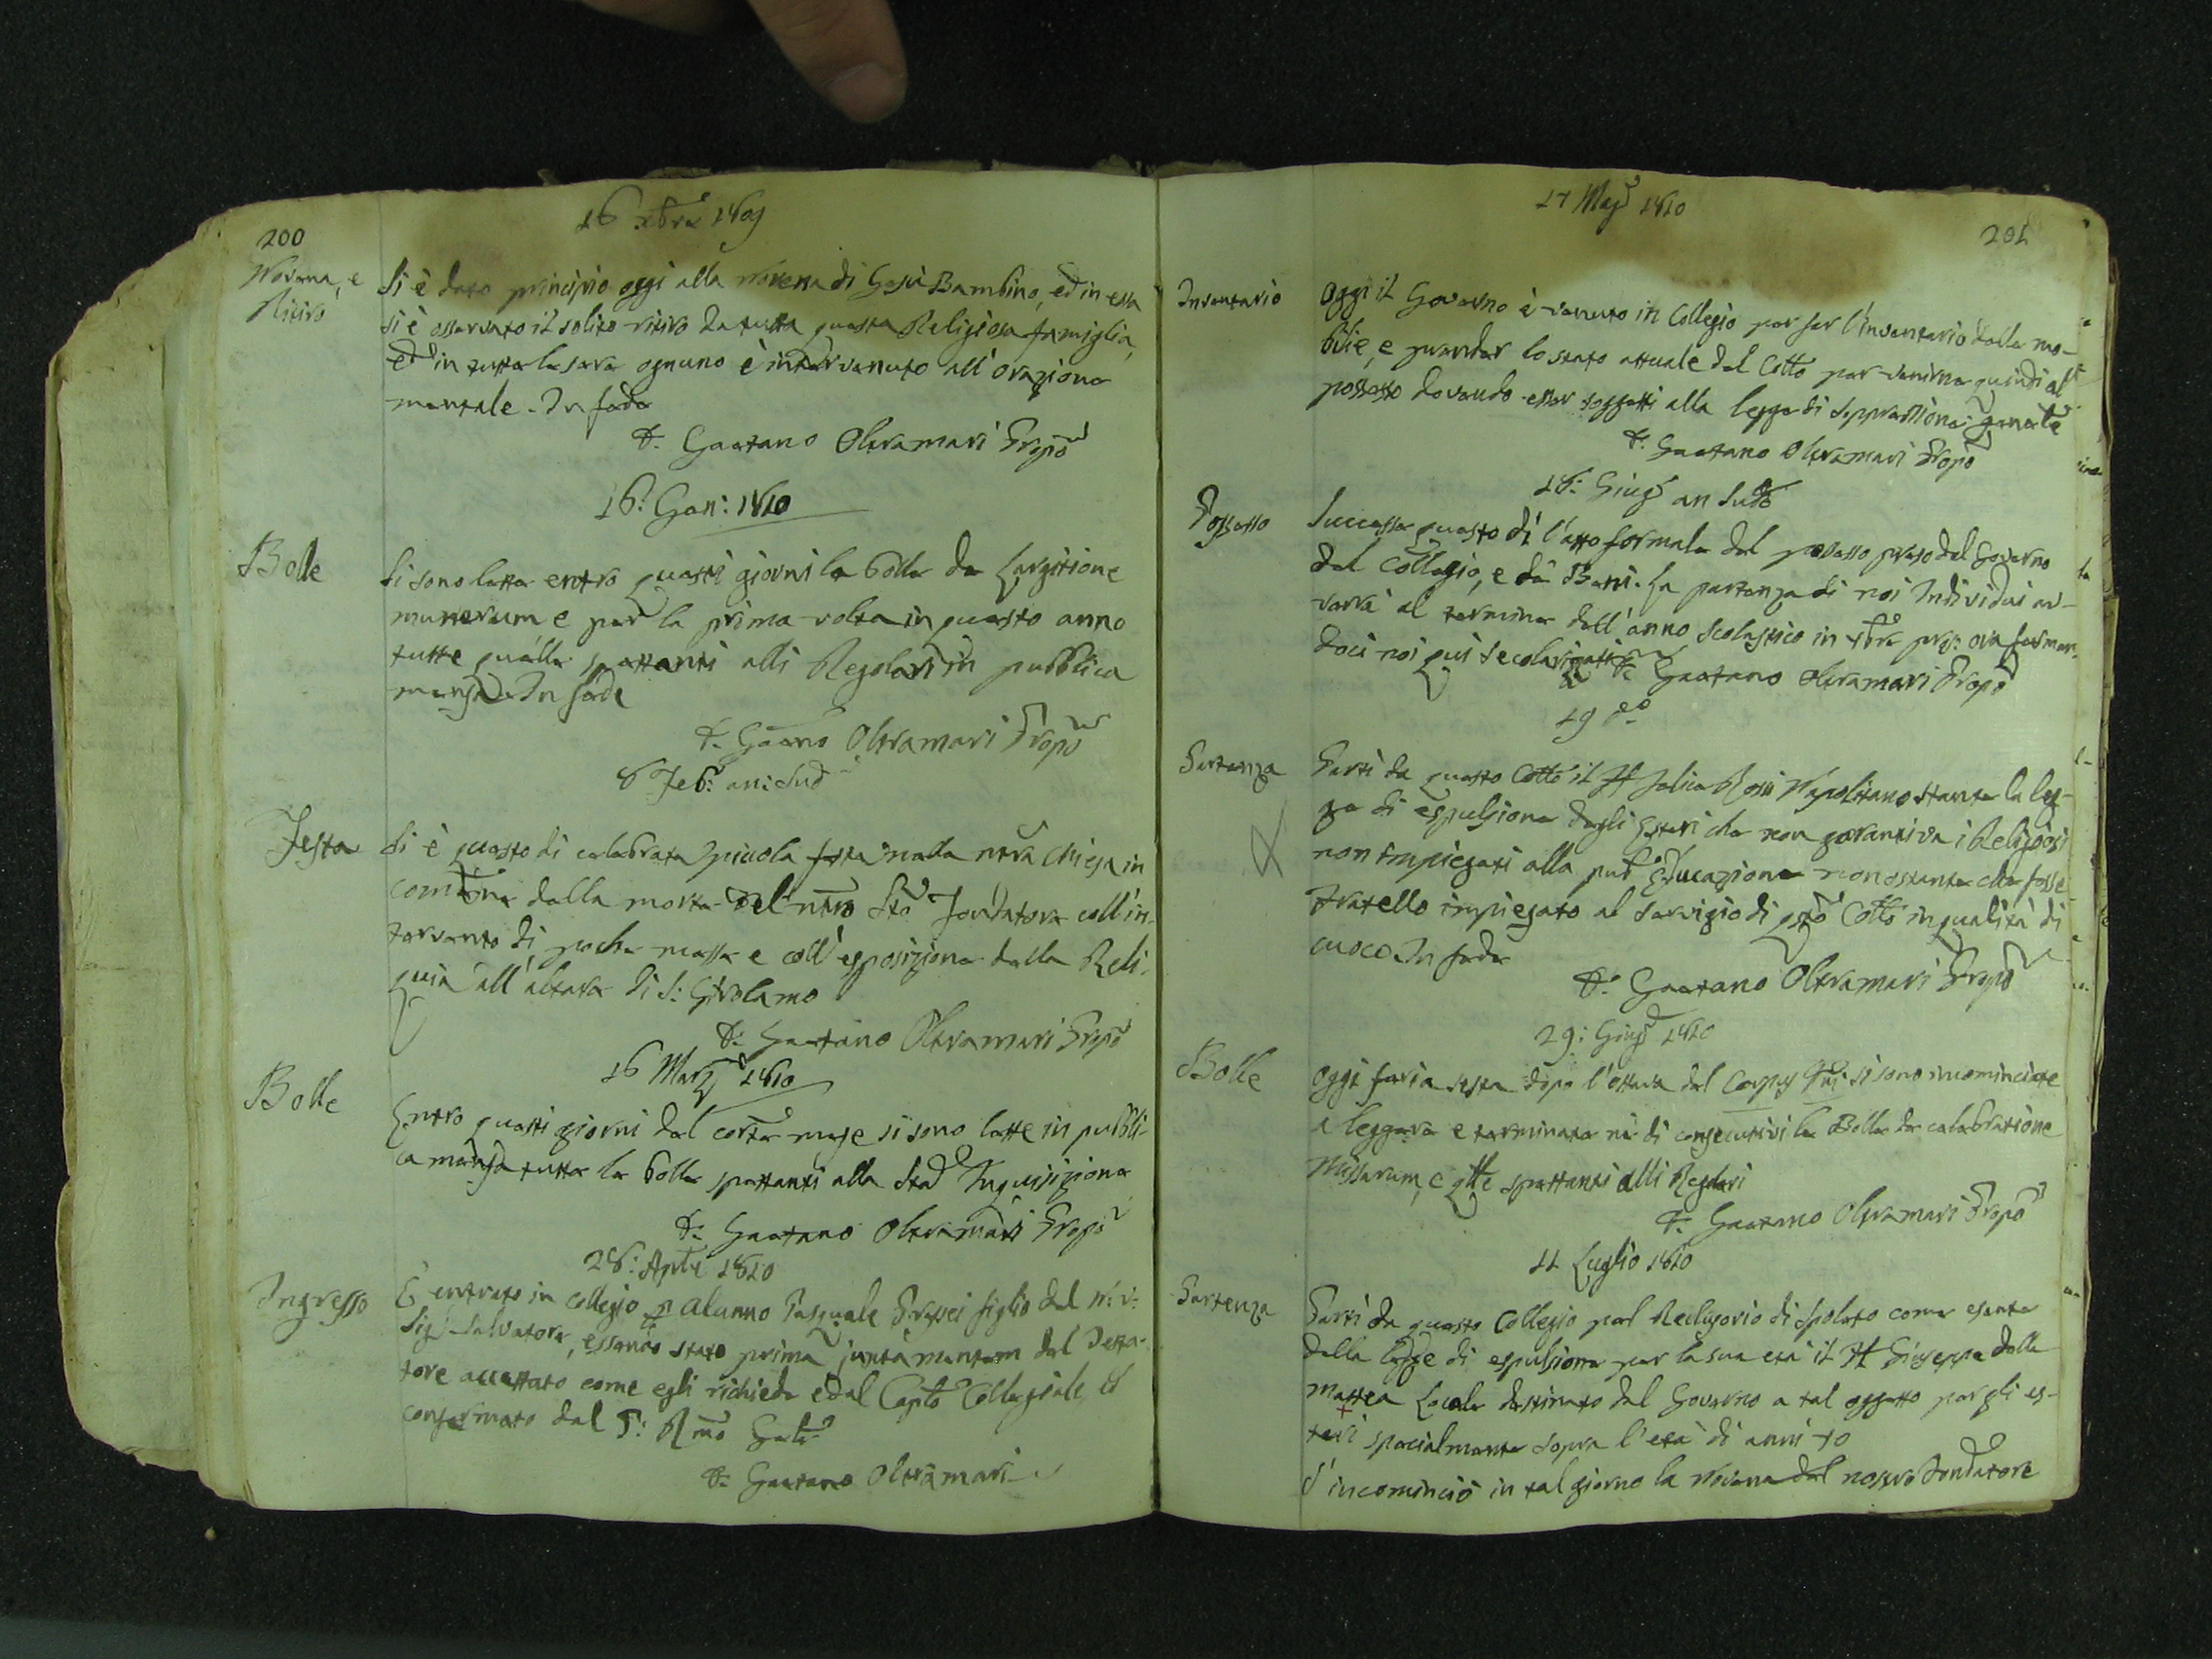 200
16 Xbre 1809
Novena, e
Ritiro
Si è dato principio oggi alla Novena di Gesù Bambino, ed in essa
si è osservato il solito ritiro da tutta questa Religiosa famiglia,
ed in tutte le sere ognuno è intervenuto all'orazione
mentale. In fede
D. Gaetano Oltramari Propo
16: Gen: 1810
Bolle
Si sono lette entro questi giorni le bolle de Largitione
munerum e per la prima volta in questo anno
tutte quelle spettanti alli Regolari in pubblica
mensa. In fede
D. Gaeno Oltramari Propo
8 Feb: an: Sud
Festa
Si è questo di celebrata piccola festa nella nra Chiesa in
comme della morte del nro Sto Fondatore coll'in-
tervento di poche messe e coll'esposizione della Reli-
quia all'altare di S: Girolamo
D. Gaetano Oltramari Propo
16 Marzo 1810
Bolle
Entro questi giorni del corte mese si sono lette in pubbli-
ca mensa tutte le bolle spettanti alla Sta Inquisizione
D. Gaetano Oltramari Propo
28: Aple 1810
Ingresso
È entrato in Collegio p Alunno Pasquale figlio del
Sigr Salvatore, essendo stato prima del Retta-
tore accettato come egli richiede e dal Capto Collegiale, e
confermato dal P: Rmo Gnle
D. Gaetano Oltramari
17 Mago 1810
201
Inventario
Oggi il Governo è venuto in Collegio per far l'inventario delle mo-
bilie, e prender lo stato attuale del Cotto per venirne quindi al
possesso dovendo esser soggetti alla legge di soppressione genale
D. Gaetano Oltramari Propo
18: Giugo an Sudo
Possesso
Successe questo dì l'atto formale del possesso preso dal Governo
del Collegio, e de Beni. La partenza di noi Individui av-
verrà al termine dell'anno scolastico in 7bre pros: ora ferman-
doci noi qui secolarizzati
D. Gaetano Oltramari Propo
19 do
Partenza
Partì da questo Cotto il Fr Felice Rossi Napolitano stante la leg-
ge di espulsione degli Esteri che non garantiva i Religiosi
non impiegati alla pub Educazione nonostante che fosse
Fratello impiegato al servigio di qsto Cotto in qualità di
cuoco. In fede
D. Gaetano Oltramari Propo
29: Giugo 1810
Bolle
Oggi feria sesta dopo l'ottava del Corpus Dni si sono incominciate
a leggere e terminate ne dì consecutivi le Bolle de celebratione
Missarum, e qlle spettanti alli Regolari
D. Gaetano Oltramari Propo
11 Luglio 1810
Partenza
Partì da questo Collegio pel Reclusorio di Spoleto come esente
dalla legge di espulsione per la sua età il Fr Giuseppe Dalla
Mattea Locale destinato dal Governo a tal oggetto per gli es-
teri specialmente sopra l'età di anni 70
S'incominciò in tal giorno la Novena del nostro Fondatore